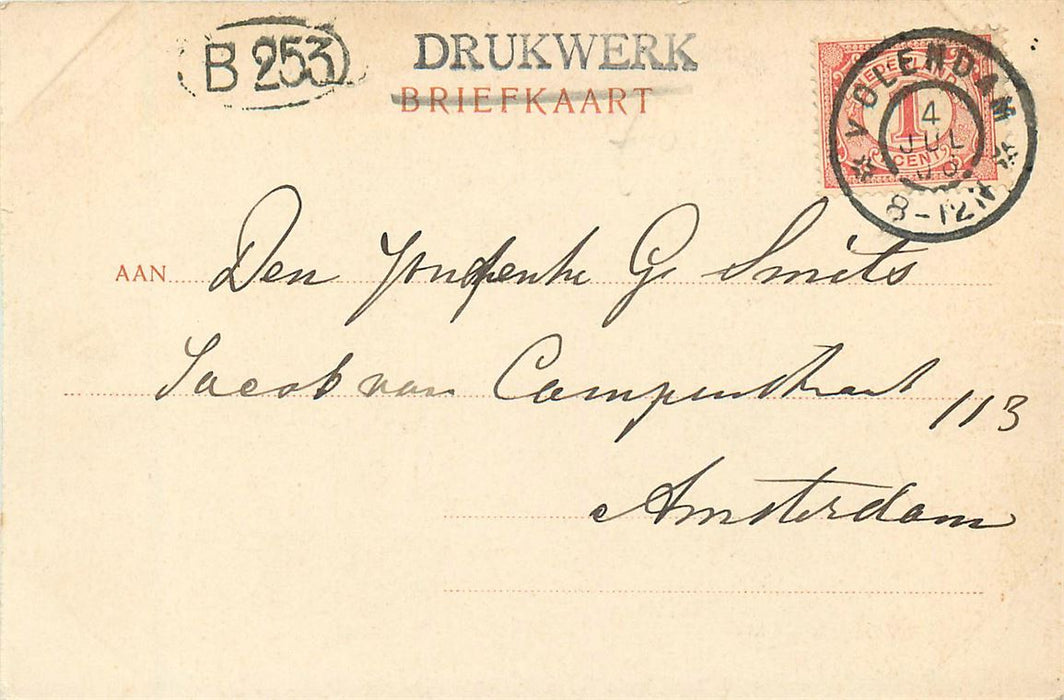 B 253
DRUKWERK
BRIEFKAART
NEDERLAND
1
CENT
VOLENDAM
4
JUL
8-12N
AAN Den G. Smits
Jacob van Campenstraat 113
Amsterdam